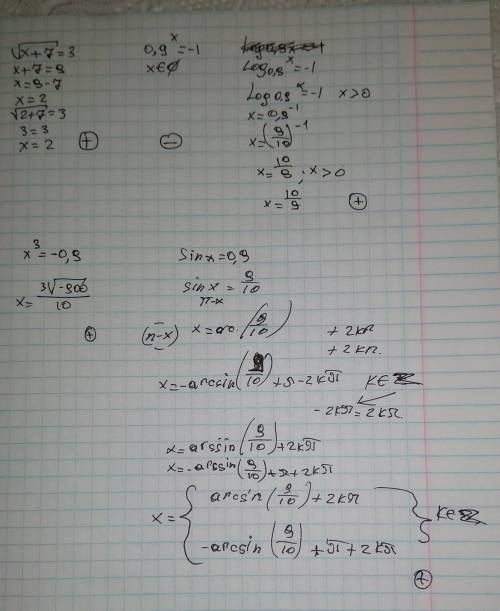 √x+7=3
x+7=9
x=9-7
x=2
√2+7=3
3=3
x=2 +
0,9^x=-1
x∈∅
−
Log0,9^x=-1
Log0,9^x=-1 x>0
x=0,9^-1
x=(9/10)^-1
x=10/9; x>0
x=10/9 +
x^3=-0,9
x=3√-900/10
+
Sinx=0,9
sinx=9/10
π-x
(π-x) x=arc(9/10) +2kπ
+2kπ.
x=-arcsin(9/10)+π-2kπ K∈Z
-2kπ=2kπ.
x=arssin(9/10)+2kπ
x=-arssin(9/10)+π+2kπ
x={ arcsin(9/10)+2kπ
-arcsin(9/10)+π+2kπ } K∈Z
+